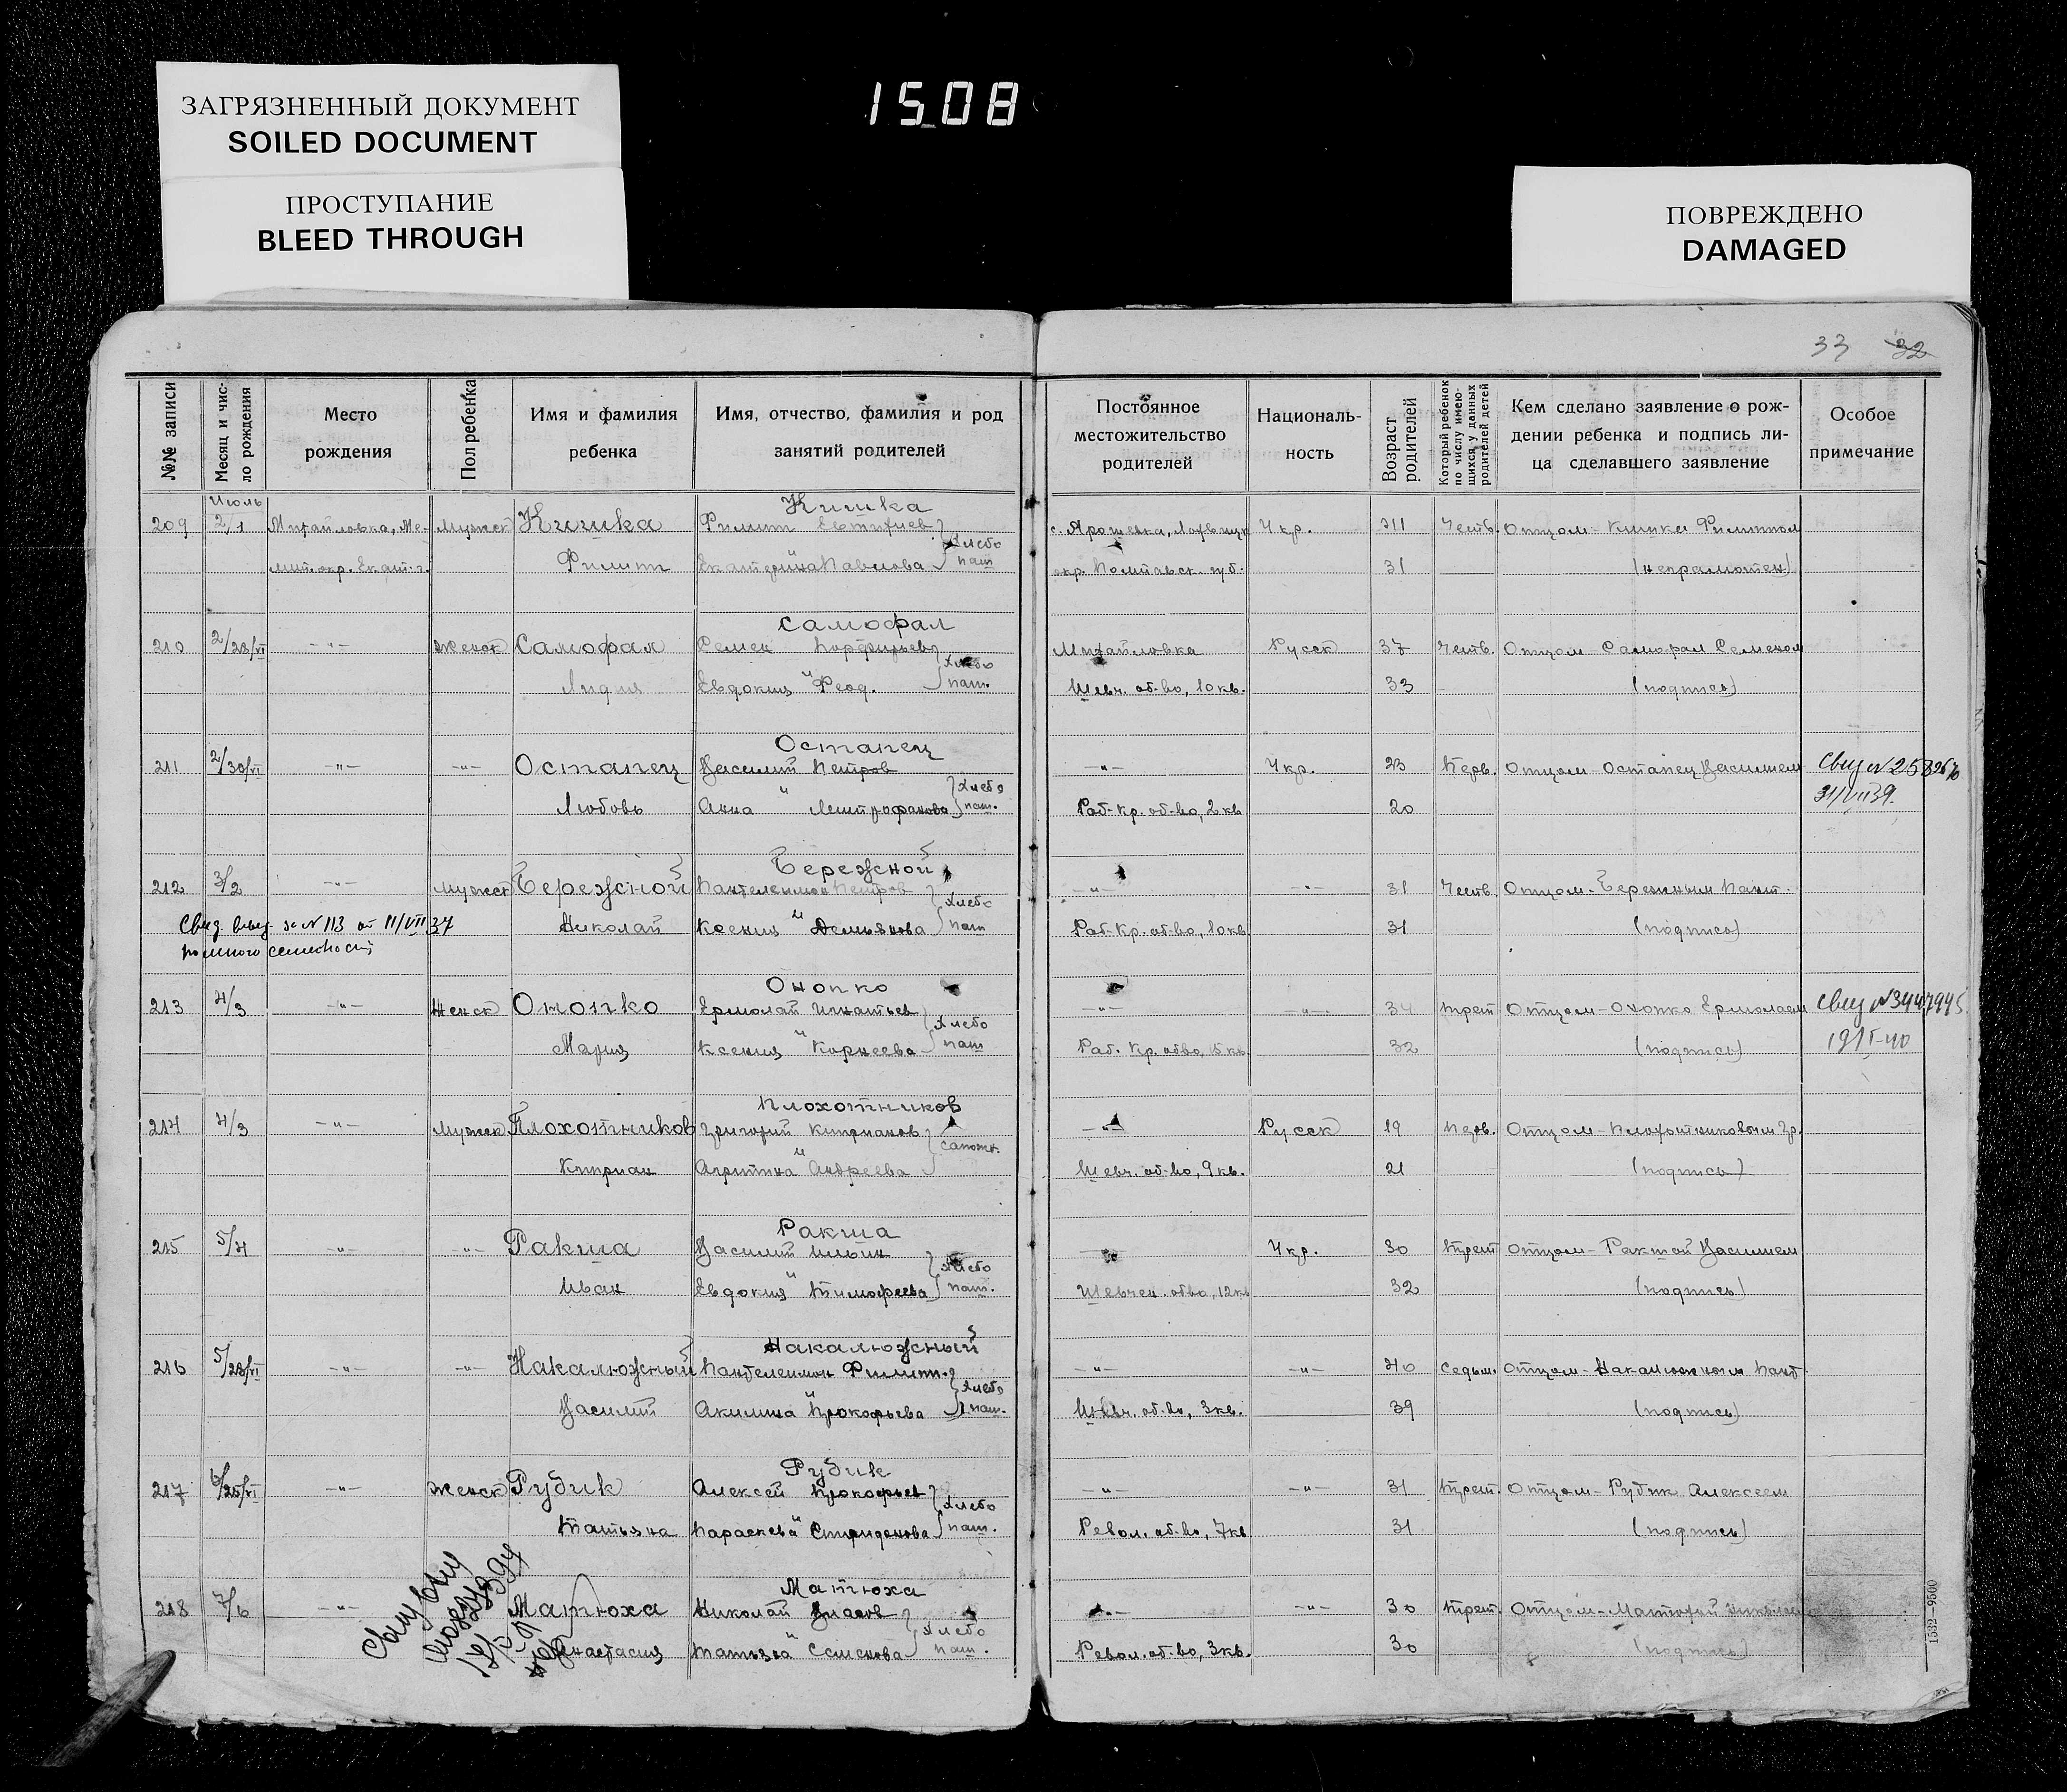 ЗАГРЯЗНЕННЫЙ ДОКУМЕНТ
SOILED DOCUMENT
ПРОСТУПАНИЕ
BLEED THROUGH
1508
ПОВРЕЖДЕНО
DAMAGED
33 32
№№ записи
Месяц и число рождения
Место рождения
Пол ребенка
Имя и фамилия ребенка
Имя, отчество, фамилия и род занятий родителей
Постоянное местожительство родителей
Националь-ность
Возраст родителей
Который ребенок по числу имею-щихся у данных родителей детей
Кем сделано заявление о рож-дении ребенка и подпись ли-ца сделавшего заявление
Особое примечание
Июль Кишка
209 2/1 Михайловка, Ме- мужск Кишка Филипп Евтихиев хлебо с. Ярошевка, Лохвицк Укр. Четв. Отцом - Кишка Филиппом
лит. окр. Екат. г. Филипп Екатерина Павлова паш окр. Полтавск. губ. 31 (неграмотен)
Самофал
210 2/28/VI -"- женск Самофал Семен Порфирьев хлебо Михайловка Русск 37 Четв. Отцом - Самофал Семеном
Лидия Евдокия " Феод. паш. Шевч. об-во, 10 кв. 33 (подпись)
Остапец
211 2/30/VI -"- -"- Остапец Василий Петров хлебо -"- Укр. 23 Перв. Отцом - Остапец Василием Свид N
Любовь Анна " Митрофанова паш. Раб-Кр. об-во, 2 кв 20 31/VII 39.
Бережной
212 3/2 -"- мужск Бережной Пантелеимон Петров хлебо -"- -"- 31 Четв. Отцом - Бережным Пант.
Свид. выд. за N 113 от 11/VII 37 Николай Ксения " Демьянова паш Раб-Кр. об-во, 10 кв 31 (подпись)
многосемейност
Онопко
213 4/3 -"- Женск Онопко Ермолай Игнатьев хлебо -"- -"- 34 трет Отцом - Онопко Ермолаем Свид N
Мария Ксения " Корнеева паш Раб. Кр. обво, 15 кв 32 (подпись) 19/I-40
Плохотников
214 4/3 -"- мужск Плохотников Григорий Киприанов сапожн. -"- Русск 19 Перв. Отцом - Плохотниковым Гр.
Киприан Агриппина " Андреева Шевч. об-во, 9 кв. 21 (подпись)
Ракша
215 5/4 -"- -"- Ракша Василий Ильин хлебо -"- Укр. 30 трет Отцом - Ракшой Василием
Иван Евдокия " Тимофеева паш. Шевчен. обво, 12 кв 32 (подпись)
Накалюжный
216 5/28/VI -"- -"- Накалюжный Пантелеимон Филипп. хлебо -"- -"- 40 седьм. Отцом - Накалюжным Пант
Василий Акилина " Прокофьева паш. Шевч. об-во, 3 кв. 39 (подпись)
Рудик
217 6/25/VI -"- женск Рудик Алексей Прокофьев хлебо -"- -"- 31 трет. Отцом - Рудик Алексеем
Татьяна Параскева " Спиридонова паш. Револ. об-во, 7 кв 31 (подпись)
Матюха
218 7/6 -"- Матюха Николай Власов хлебо -"- -"- 30 трет. Отцом - Матюхой Николаем
Анастасия Татьяна " Семенова паш. Револ. об-во, 3 кв. 30 (подпись)
1532—9500